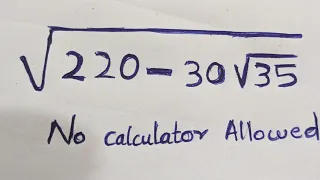 √(220 - 30√35)
No Calculator Allowed